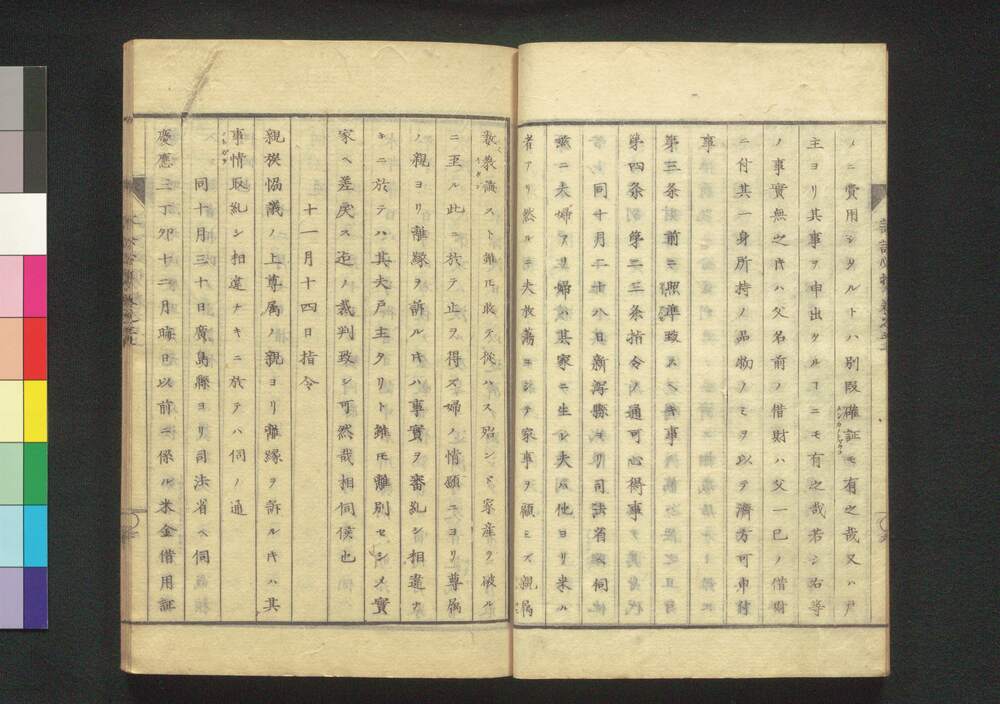 メニ費用シタルトハ別段確証モ有之哉又ハ戸
主ヨリ其事ヲ申出タルコニモ有之哉若シ右等
ノ事實無之𪜈ハ父名前ノ借財ハ父一已ノ借財
ニ付其一身所持ノ品物ノミヲ以テ濟方可申付
事
第三条前ニ照準致スヘキ事
第四条第二三条指令ノ通可心得事
同十月二十八日新潟縣ヨリ司法省ヘ伺
爰ニ夫婦アリ婦ハ其家ニ生レ夫ハ他ヨリ来ル
者アリ然ルニ夫放蕩ニシテ家事ヲ顧ミズ親属
教誨スト雖𪜈敢テ從ハス殆ント家産ヲ破ル
ニ至ル此ニ於テ止ヲ得ズ婦ノ情願ニヨリ尊属
ノ親ヨリ離縁ヲ訴ルキハ事實ヲ審糺シ相違ナ
キニ於テハ其夫戸主タリト雖モ離別セシメ實
家ヘ差戻ス迠ノ裁判致シ可然哉相伺候也
十一月十四日指令
親族協議ノ上尊属ノ親ヨリ離縁ヲ訴ルキハ其
事情取糺シ相違ナキニ於テハ伺ノ通
同十月三十日廣島縣ヨリ司法省ヘ伺
慶應三丁卯十二月晦日以前ニ係ル米金借用証